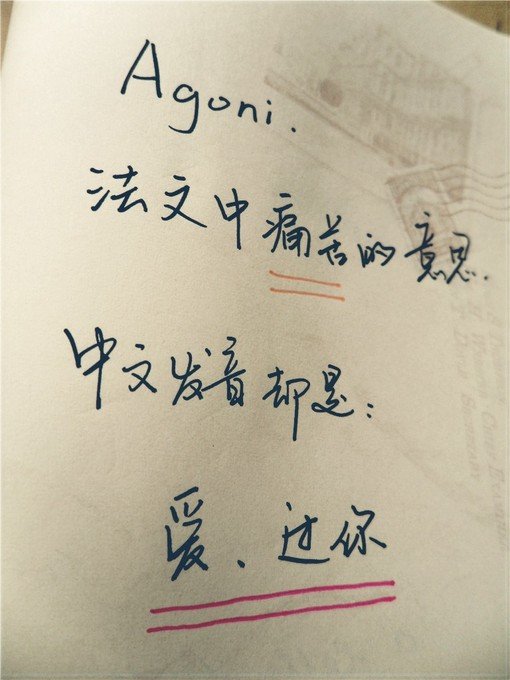 Agoni.
法文中痛苦的意思.
中文发音却是：
爱、过你